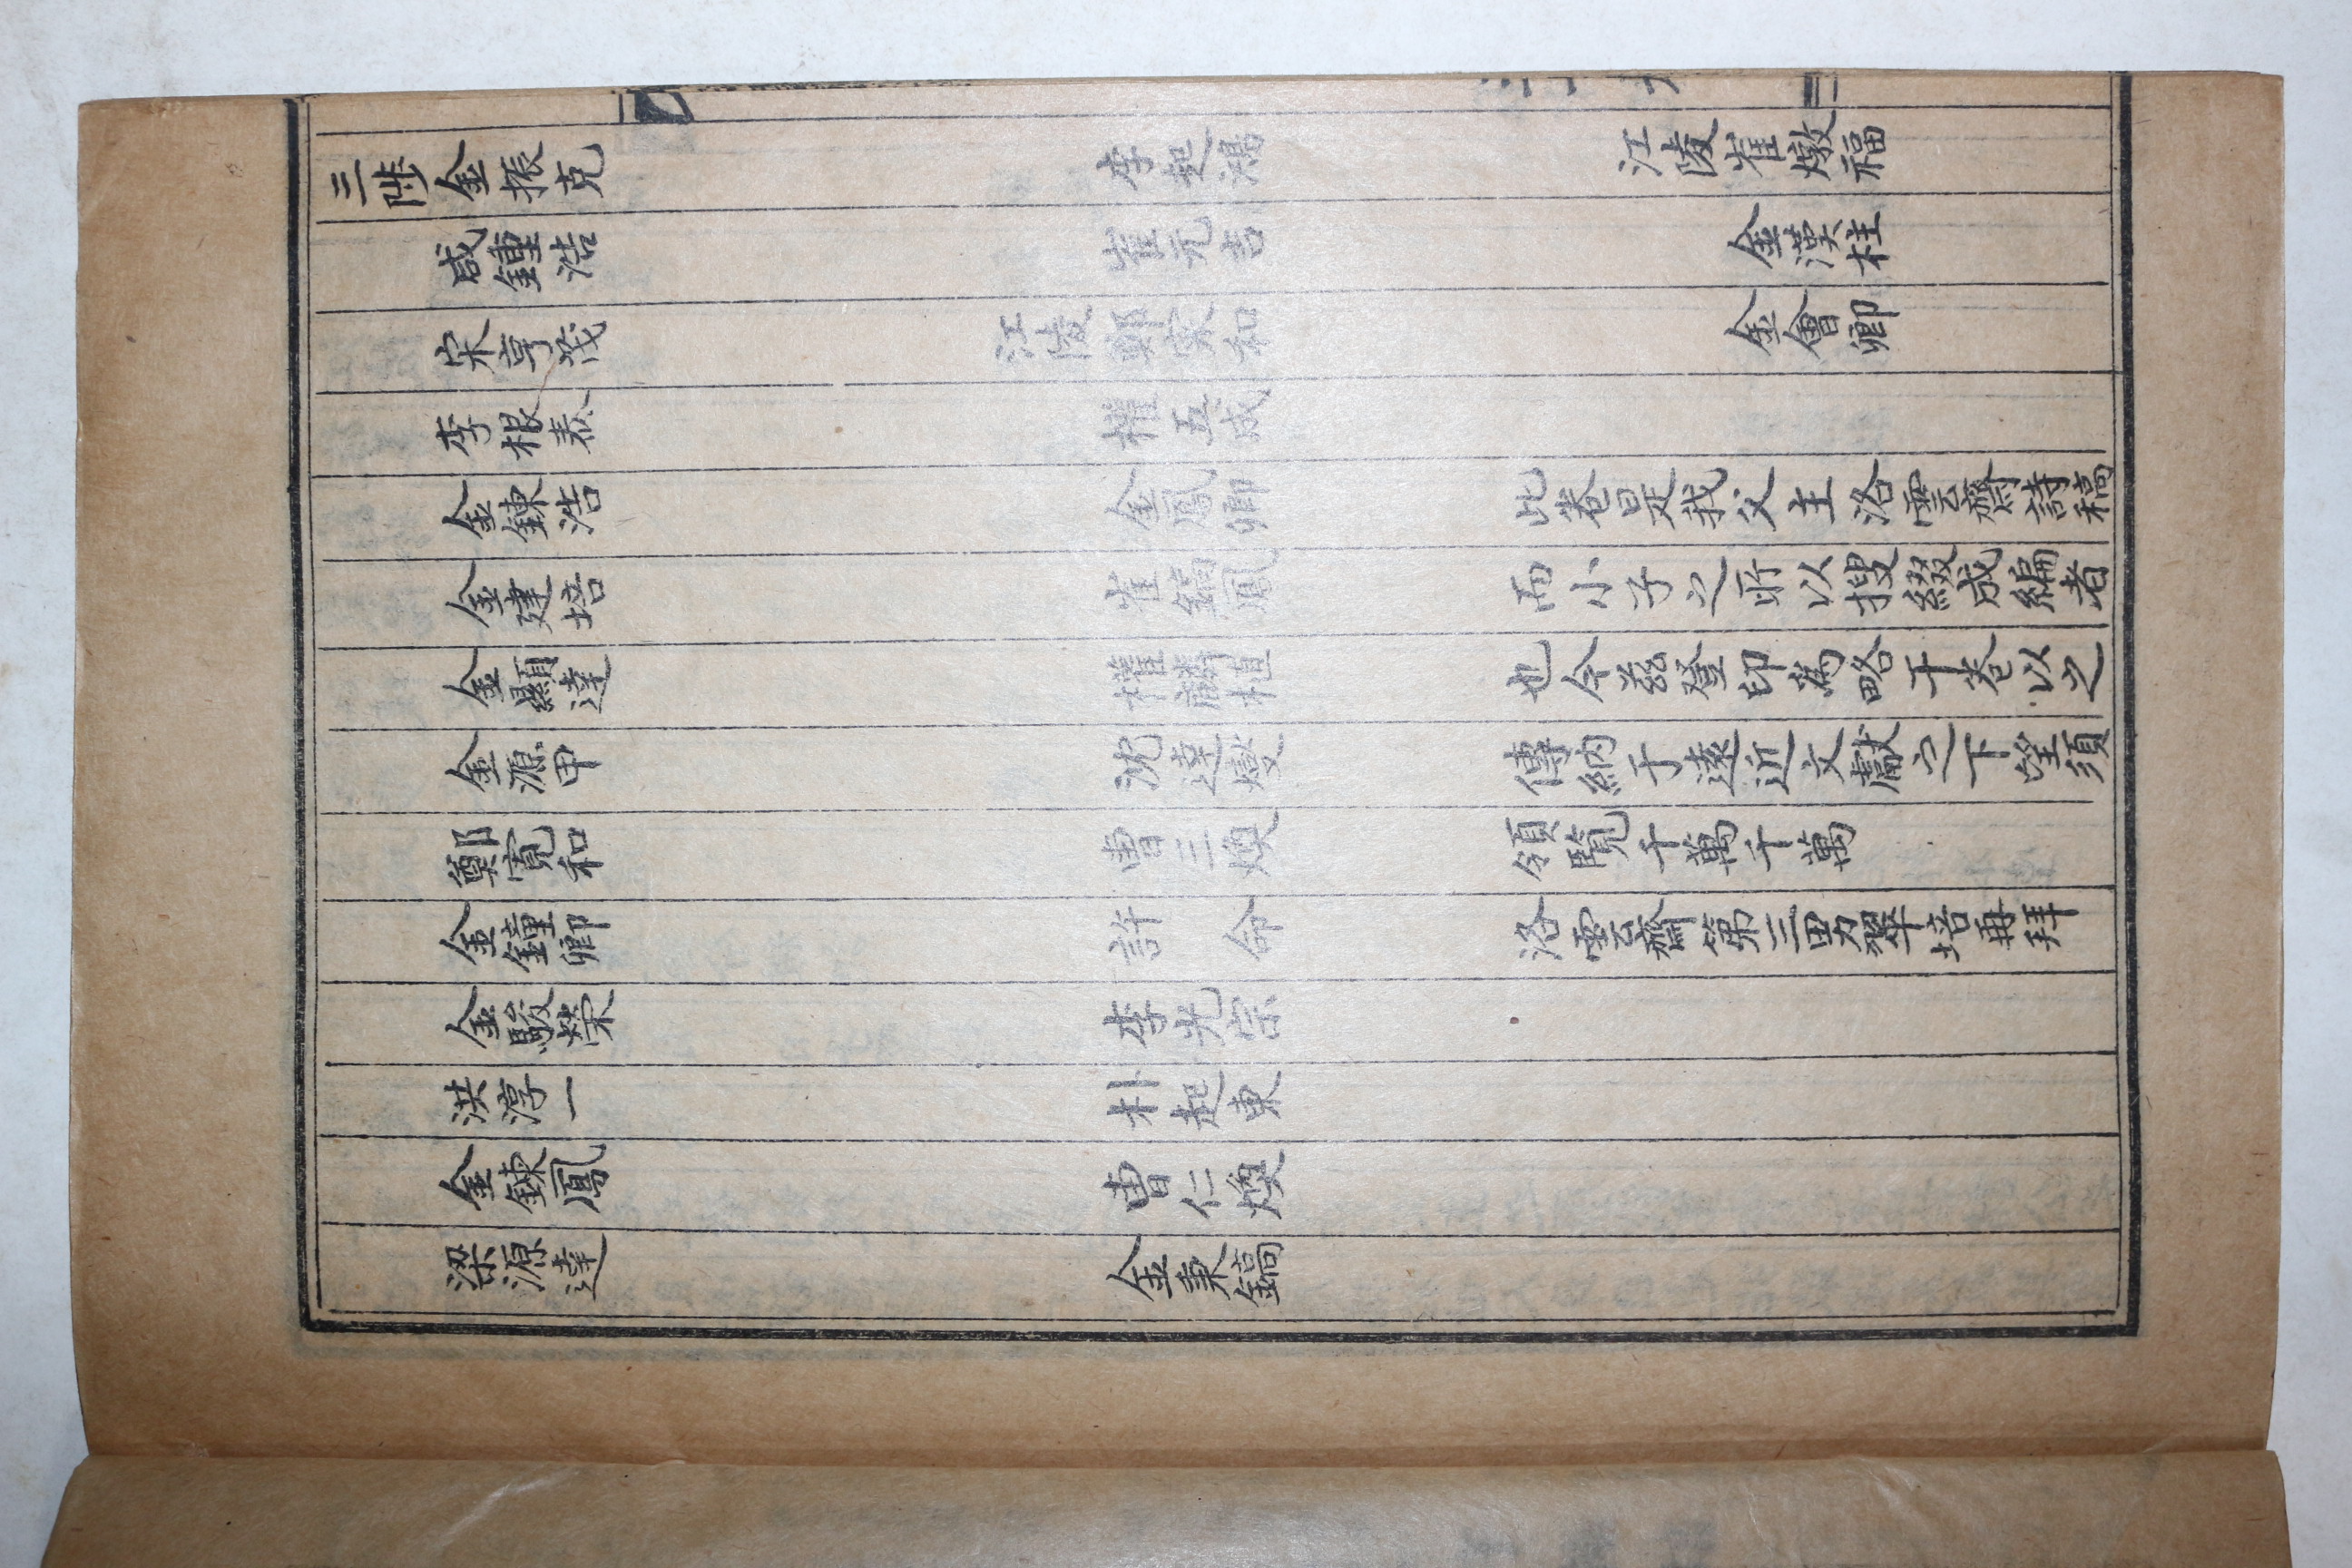 三陟 金振克
咸鍾浩
宋亨茂
李根泰
金鍊浩
金建培
金顯達
金源甲
鄭寬和
金鐘卿
金駿榮
洪淳一
金鍊鳳
梁源達
李起鴻
崔元吉
江陵 鄭寅和
權五成
金鳳卿
崔鎬鳳
權麟植
沈達燮
曺三煥
許命
李光宗
朴起東
曺仁煥
金秉鎬
江陵崔燉福
金漢柱
金會卿
此卷是我父主洛雲齋詩稿
而小子之所以搜綴成編者
也今玆登印爲略干卷以之
傳納于遠近文獻之下望須
領覽千萬千萬
洛雲齋第三男翠培再拜